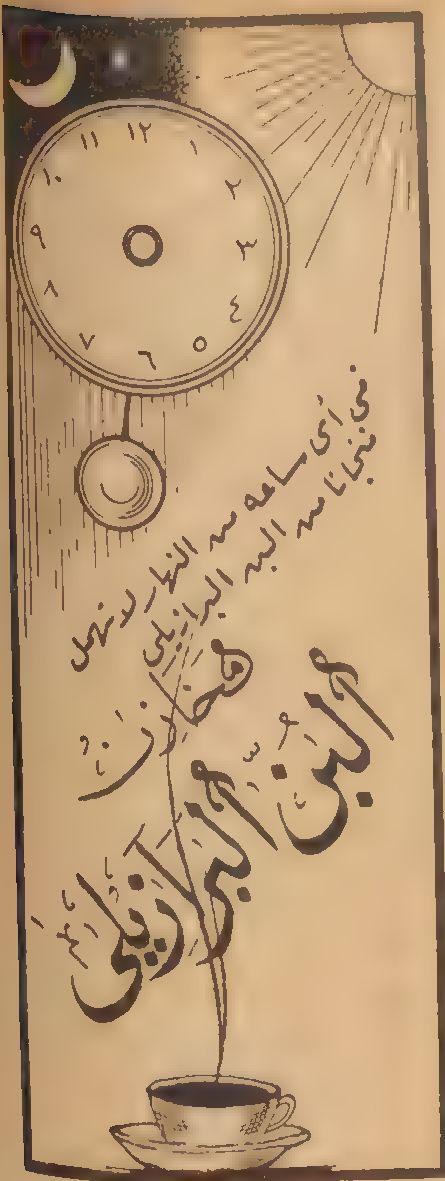 ١٢
١
٢
٣
٤
٥
٦
٧
٨
٩
١٠
١١
فى أى ساعه من النهار لا تهمل
فنجانا من البن البرازيلى
مخازن
البن
البرازيلى